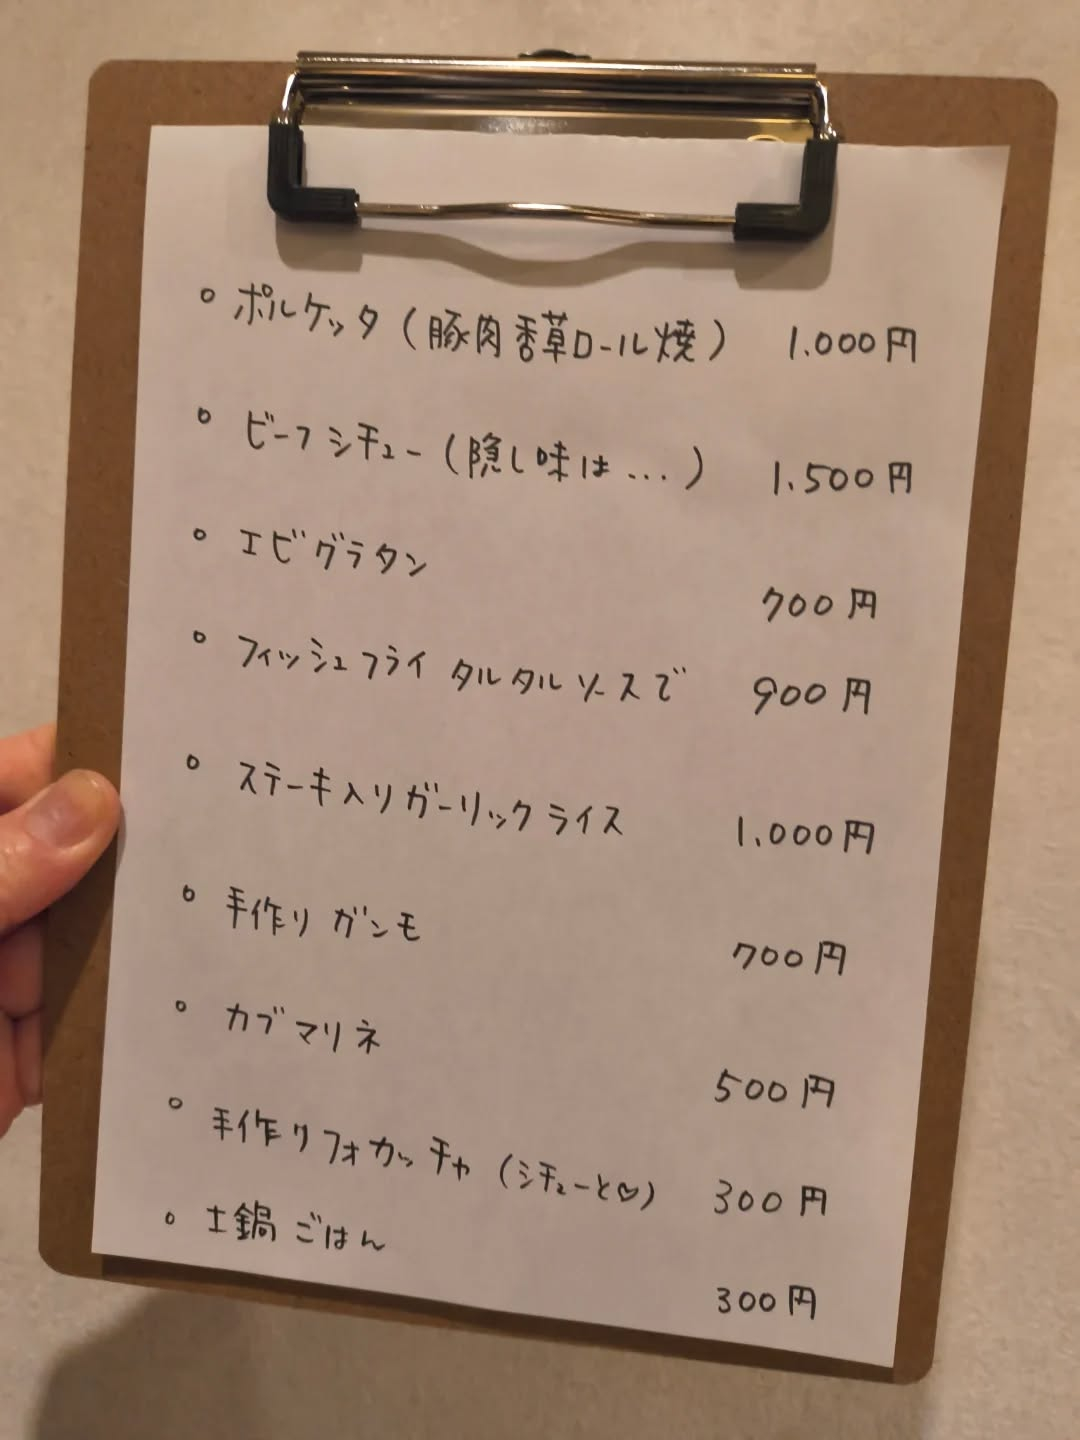 ◦ ポルケッタ（豚肉香草ロール焼） 1.000円
◦ ビーフシチュー（隠し味は...） 1.500円
◦ エビグラタン 700円
◦ フィッシュフライ タルタルソースで 900円
◦ ステーキ入りガーリックライス 1.000円
◦ 手作りガンモ 700円
◦ カブマリネ 500円
◦ 手作りフォカッチャ（シチューと♡） 300円
◦ 土鍋ごはん 300円